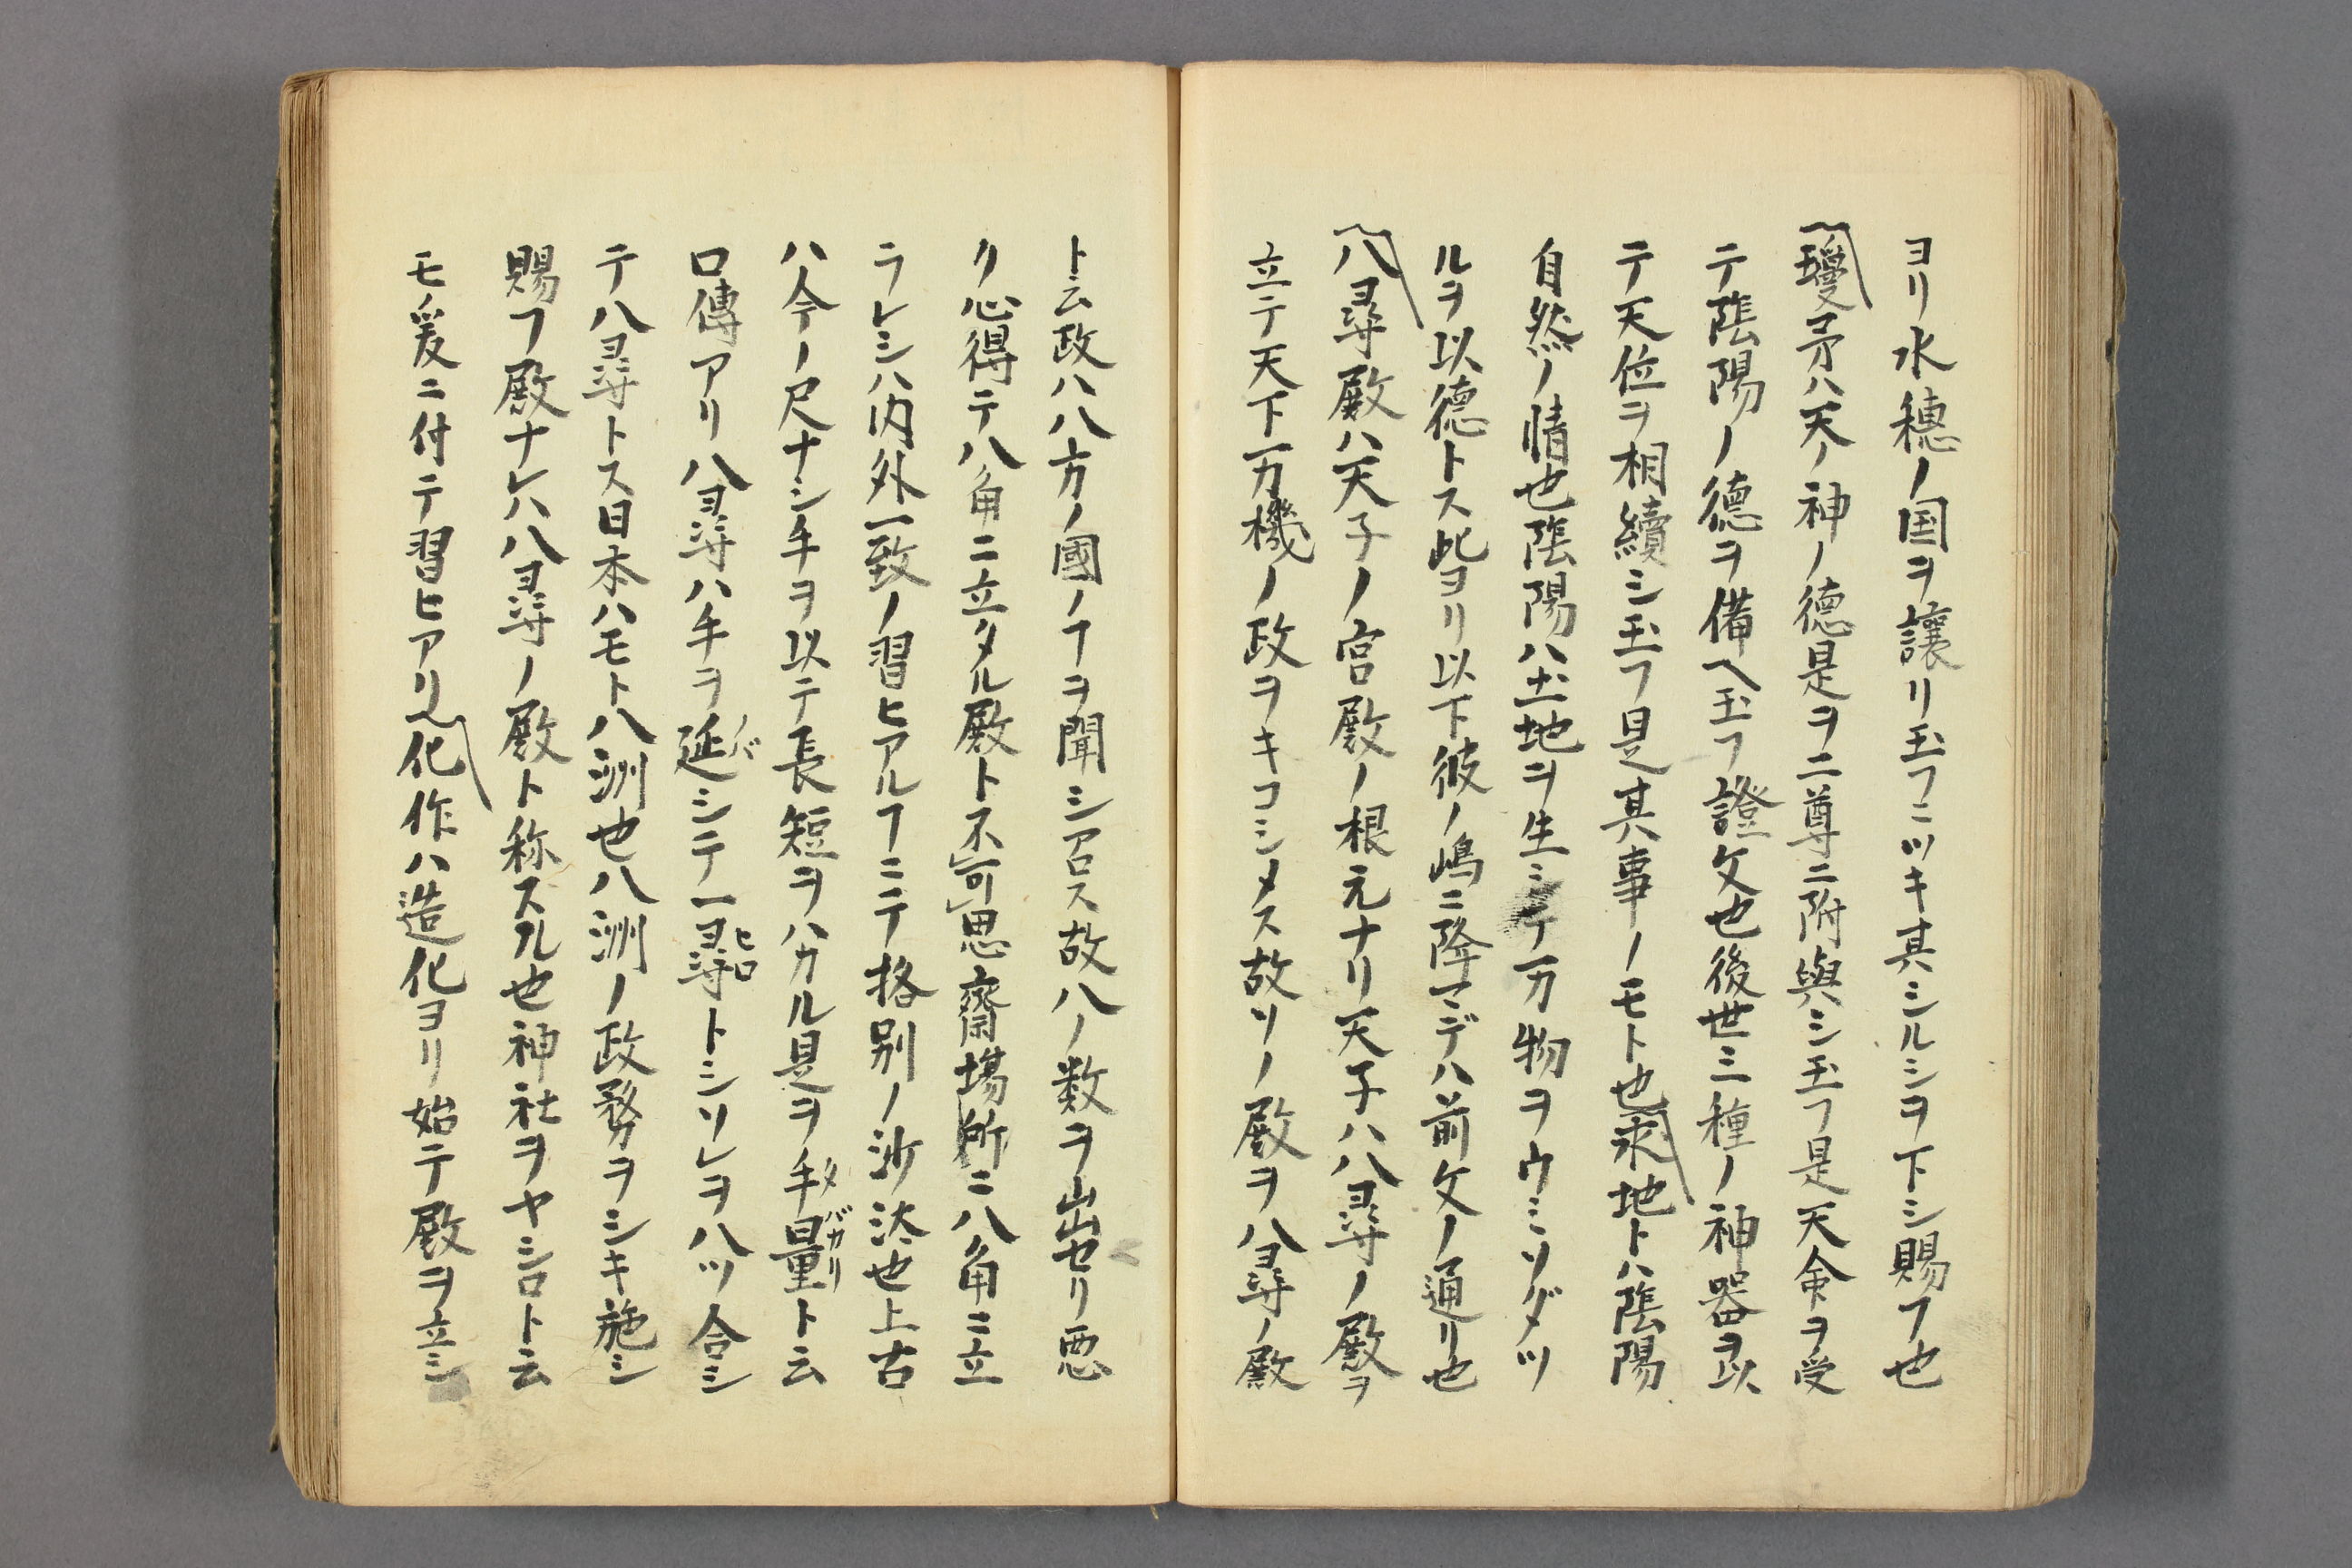 ヨリ水穂ノ国ヲ讓リ玉フニツキ其シルシヲ下シ賜フ也
瓊矛ハ天ノ神ノ德是ヲ二尊ニ附與シ玉フ是天命ヲ受
テ陰陽ノ德ヲ備ヘ玉フ證文也後世三種ノ神器ヲ以
テ天位ヲ相續シ玉フ是其事ノモト也求地トハ陰陽
自然ノ情也陰陽ハ土地ヲ生ミテ万物ヲウミソダツ
ルヲ以德トス此ヨリ以下彼ノ嶋ニ降マデハ前文ノ通リ也
八尋殿ハ天子ノ宮殿ノ根元ナリ天子ハ八尋ノ殿ヲ
立テ天下万機ノ政ヲキコシメス故ソノ殿ヲ八尋ノ殿
ト云政ハ八方ノ國ノヿヲ聞シアロス故八ノ数ヲ出セリ悪
ク心得テ八角ニ立タル殿ト不可思齋場所ニ八角ニ立
ラレシハ内外一致ノ習ヒアルヿニテ格別ノ沙汰也上古
ハ今ノ尺ナシ手ヲ以テ長短ヲハカル是ヲ手量タバカリト云
口傳アリ八尋ハ手ヲ延ノバシテ一尋ヒロトシソレヲ八ツ合シ
テ八尋トス日本ハモト八洲也八洲ノ政務ヲシキ施シ
賜フ殿ナレハ八尋ノ殿ト称スル也神社ヲヤシロト云
モ爰ニ付テ習ヒアリ化作ハ造化ヨリ始テ殿ヲ立シ